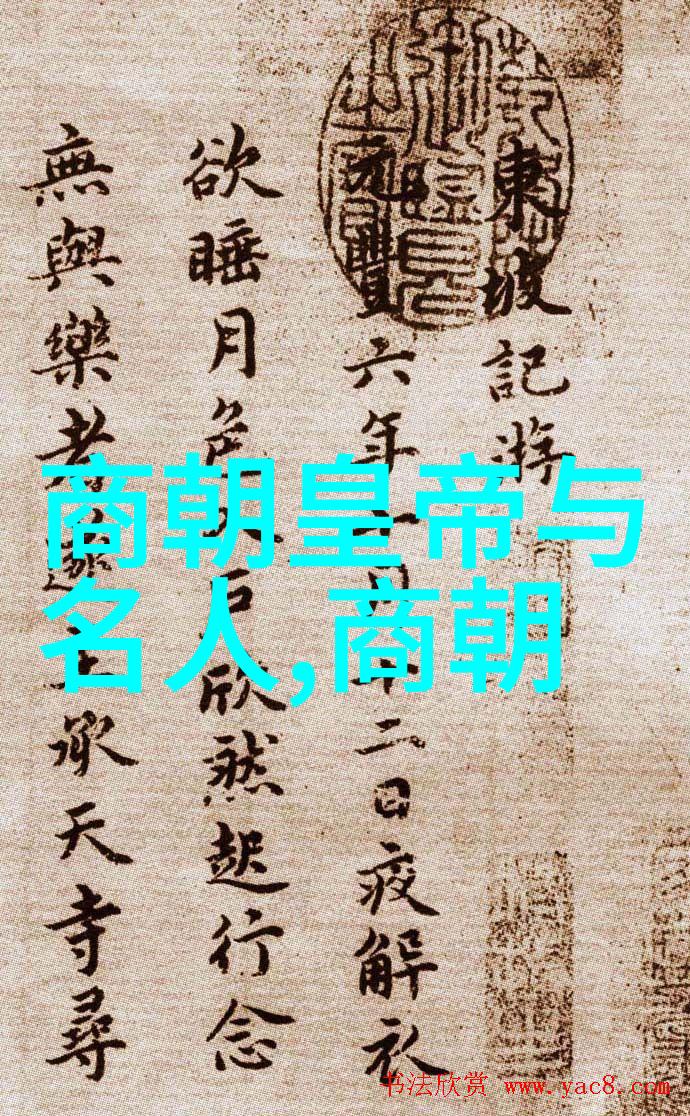 東坡記游
元豐六年十月十二日夜解衣
欲睡月色入戶欣然起行念
無與樂者遂至承天寺尋
商朝皇帝与
名人,商朝
书法欣赏 www.yac8.com